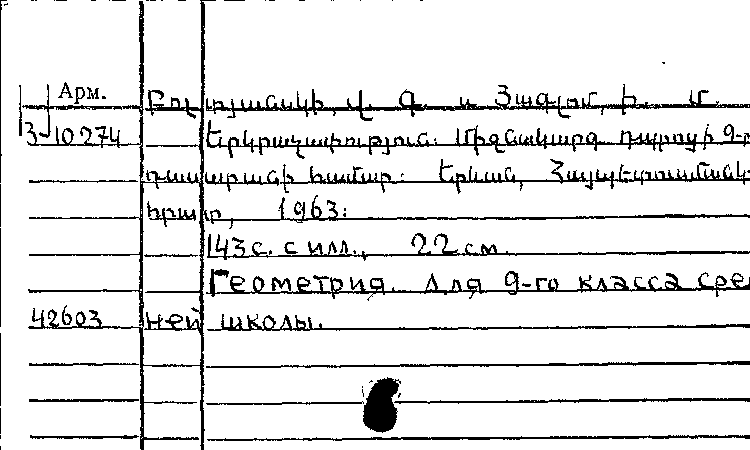 Арм.
Բոլտյանսկի, վ. գ. и Յագլոմ, ի. մ.
3-10274 Երկրաչափություն: Միջնակարգ դպրոցի 9-րդ
դասարանի համար: Երևան, Հայպետուսմանկ
հրատ, 1963:
143 с. с илл., 22 см.
Геометрия. Для 9-го класса сред
42603 ней школы.